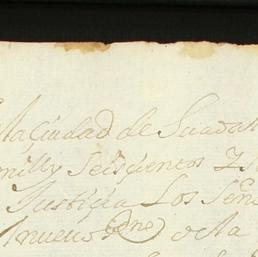 la Ciudad de Guadal
mill y Seiscientos y
Justiçia Los Señ
nuevo Rno de la